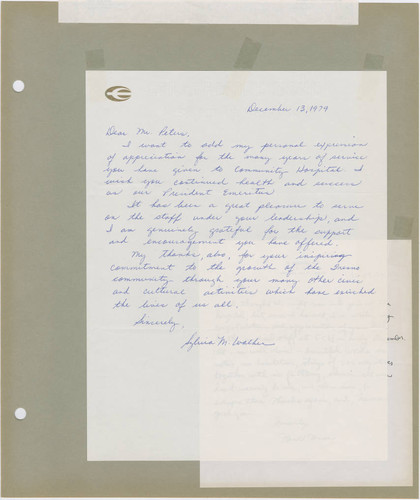 December 13, 1979
Dear Mr. Peters,
I want to add my personal expression
of appreciation for the many years of service
you have given to Community Hospital. I
wish you continued health and success
as our President Emeritus.
It has been a great pleasure to serve
on the staff under your leadership, and
I am genuinely grateful for the support
and encouragement you have offered.
My thanks, also, for your inspiring
commitment to the growth of the Fresno
community through your many other civic
and cultural activities which have enriched
the lives of us all.
Sincerely,
Sylvia M. Walker